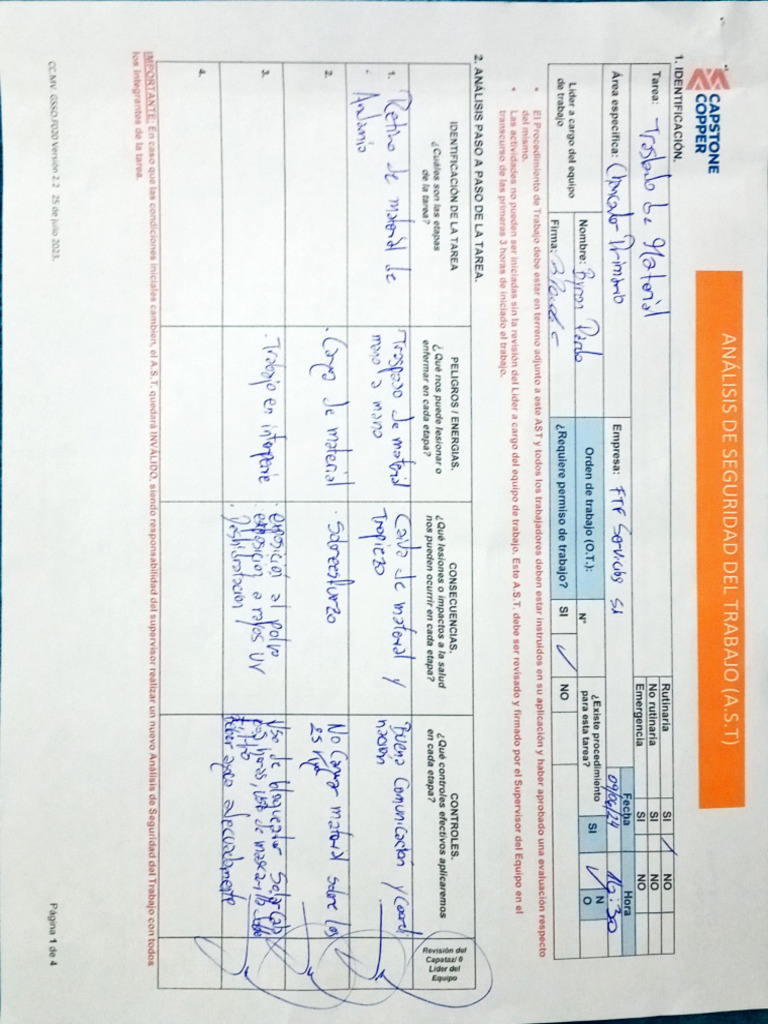 CAPSTONE
COPPER
ANÁLISIS DE SEGURIDAD DEL TRABAJO (A.S.T)
1. IDENTIFICACIÓN.
Tarea: Traslado de Material
Rutinaria SI NO
No rutinaria SI NO
Emergencia SI NO
Área específica: Chancador Primario
Empresa: FTF Servicios SA
Fecha
09/04/24
Hora
16:30
Líder a cargo del equipo
de trabajo
Nombre: Byron Pardo
Firma:
Orden de trabajo (O.T.): N°
¿Requiere permiso de trabajo? SI NO
¿Existe procedimiento
para esta tarea?
SI
N
O
• El Procedimiento de Trabajo debe estar en terreno adjunto a este AST y todos los trabajadores deben estar instruidos en su aplicación y haber aprobado una evaluación respecto
del mismo.
• Las actividades no pueden ser iniciadas sin la revisión del Líder a cargo del equipo de trabajo. Este A.S.T. debe ser revisado y firmado por el Supervisor del Equipo en el
transcurso de las primeras 3 horas de iniciado el trabajo.
2. ANÁLISIS PASO A PASO DE LA TAREA.
IDENTIFICACIÓN DE LA TAREA
¿Cuáles son las etapas
de la tarea?
PELIGROS / ENERGIAS.
¿Qué nos puede lesionar o
enfermar en cada etapa?
CONSECUENCIAS.
¿Qué lesiones o impactos a la salud
nos pueden ocurrir en cada etapa?
CONTROLES.
¿Qué controles efectivos aplicaremos
en cada etapa?
Revisión del
Capataz/ o
Líder del
Equipo
1. Retiro de material de
Andamio
Traspaso de material
mano a mano
Caida de material y
Tropiezo
Buena Comunicación y Coordi
nación
2.
· Carga de material
· Sobreesfuerzo
No Cargar material sobre los
25 kg
3.
· Trabajo en interperie
· exposición al polvo
exposición a rayos UV
· Deshidratación
Uso de bloqueador Solar Cada
horas, uso de mascarilla doble
filtro
beber agua adecuadamente
4.
IMPORTANTE: En caso que las condiciones iniciales cambien, el A.S.T. quedará INVÁLIDO, siendo responsabilidad del supervisor realizar un nuevo Análisis de Seguridad del Trabajo con todos
los integrantes de la tarea.
CC.MV. GSSO.F020 Versión 2.2 25 de julio 2023.
Página 1 de 4